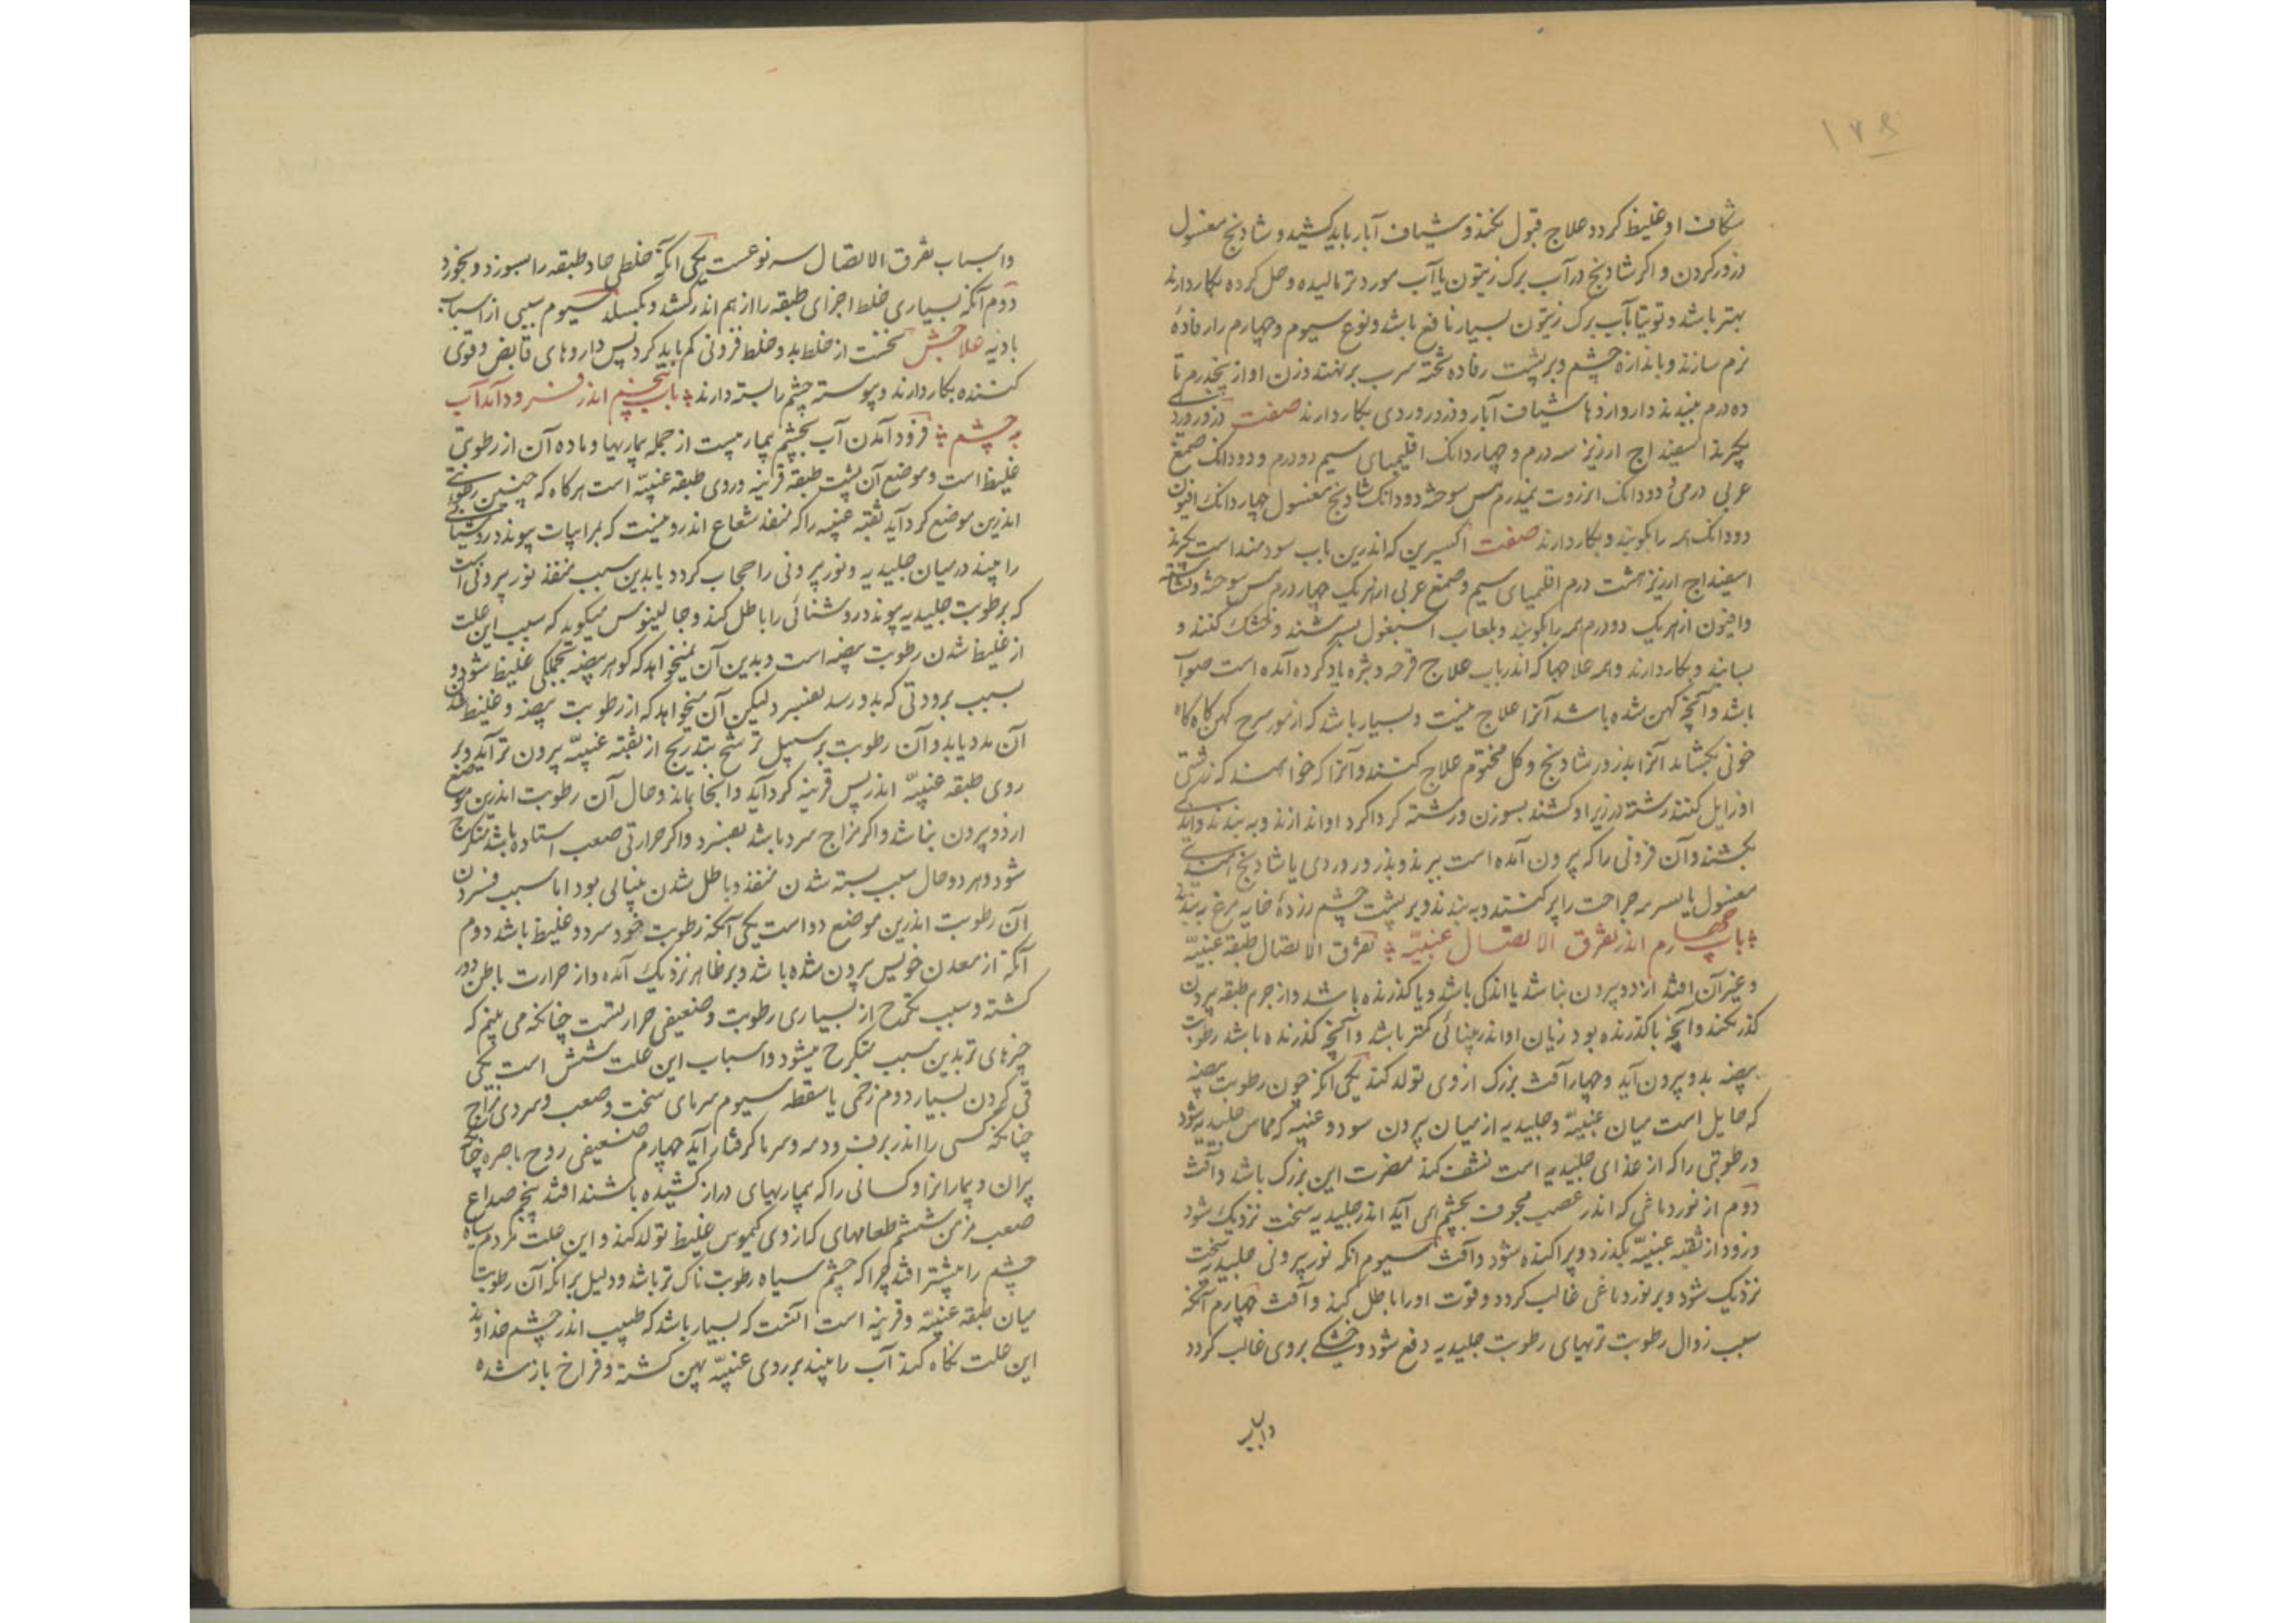 ۱۷۹
شکاف او غلیظ کردد علاج قبول نکند و شیاف آبار باید کشید و شادنج مغسول
ذرور کردن و اکر شادنج در آب برک زیتون یا آب مورد تر مالیده و حل کرده بکار دارند
بهتر باشد و توتیا بآب برک زیتون بسیار نافع باشد و نوع سیوم و چهارم را رفادهٔ
نرم سازند و باندازه چشم و بر پشت رفاده تخته سرب بر نهند وزن او از پنجدرم تا
ده درم ببندند و داروازدها شیاف آبار و ذرور وردی بکار دارند صفت ذرور وردی
بکیرند اسفیداج ارزیز سه درم و چهار دانک اقلیمیای سیم دو درم و دو دانک صمغ
عربی درمی و دو دانک انزروت نیمدرم مس سوخته دو دانک شادنج مغسول چهار دانک افیون
دو دانک همه را بکوبند و بکار دارند صفت اکسیرین که اندرین باب سودمند است بکیرند
اسفیداج ارزیز هشت درم اقلیمیای سیم و صمغ عربی از هر یک چهار درم مس سوخته و نشاسته
و افیون از هر یک دو درم همه را بکوبند و بلعاب اسبغول بسرشند و خشک کنند و
بسایند و بکار دارند و همه علاجها که اندر باب علاج قرحه و بثره یاد کرده آمده است صواب
باشد و آنچه کهن شده باشد آنرا علاج نیست و بسیار باشد که از مورسرح کهن کاه کاه
خونی بکشاید آنرا بذرور شادنج و کل مختوم علاج کنند و آنرا که خواهند که زشتی
او زایل کنند رشته در زیر او کشند بسوزن و رشته کرداکرد او اندازند و ببندند و اندکی
بکشند و آن فزونی را که بیرون آمده است ببرند و بذرور وردی یا شادنج
مغسول یا سرمه جراحت را پر کنند و ببندند و بر پشت چشم زردهٔ خایه مرغ ببندند
باب چهارم اندر تفرق الاتصال عنبیّه تفرق الاتصال طبقه عنبیّه
و غیر آن افتد از دو بیرون نباشد یا اندکی باشد و یا کذرنده باشد و از جرم طبقه بیرون
کذر نکند و آنچه ناکذرنده بود زیان او اندر بینائی کمتر باشد و آنچه کذرنده باشد رطوبت
بیضه بدو بیرون آید و چهار آفت بزرک از وی تولد کند یکی انکه چون رطوبت بیضه
که حایل است میان عنبیّه و جلیدیه از میان بیرون سود و عنبیه که مماس جلیدیه شود
و رطوبتی را که از غذای جلیدیه است نشف کند مضرت این بزرک باشد و آفت
دوم از نور دماغی که اندر عصب مجوف بچشم همی آید اندر جلیدیه سخت نزدیک شود
و زود از ثقبه عنبیّه بکذرد و پراکنده شود و آفت سیوم انکه نور بیرونی جلیدیه سخت
نزدیک شود و بر نور دماغی غالب کردد و قوت او را باطل کند و آفت چهارم آنکه
سبب زوال رطوبت تریهای رطوبت جلیدیه دفع شود و خشکی بروی غالب کردد
و اسباب تفرق الاتصال سه نوعست یکی انکه خلطی حاد طبقه را بسوزد و بخورد
دوم آنکه بسیاری خلط اجزای طبقه را از هم اندر کشد و بکسلد سیوم سببی از اسباب
بادیه علاجش نخست از خلط بد و خلط فزونی کم باید کرد پس داروهای قابض و قوی
کننده بکار دارند و پیوسته چشم را بسته دارند باب پنجم اندر فرود آمدن آب
به چشم فرود آمدن آب بچشم بیماریست از جمله بیماریها و ماده آن از رطوبتی
غلیظ است و موضع آن پشت طبقه قرنیه و روی طبقه عنبیّه است هر کاه که چنین رطوبتی
اندرین موضع کرد آید ثقبه عنبیه را که منفذ شعاع اندرو نیست که بمرابیات پیوندد روشنائی
را ببند در میان جلیدیه و نور بیرونی را حجاب کردد یا بدین سبب منفذ نور بیرونی است
که برطوبت جلیدیه پیوندد روشنائی را باطل کند و جالینوس میکوید که سبب این علت
از غلیظ شدن رطوبت بیضه است و بدین آن نمیخواهد که کوهر بیضه بجملکی غلیظ شود و
بسبب برودتی که بدو رسد بفسرد لیکن آن میخواهد که از رطوبت بیضه و غلیظ شدن
آن مدد یابد و آن رطوبت بر سبیل ترشح بتدریج از ثقبه عنبیّه بیرون تر آید و بر
روی طبقه عنبیّه اندر پس قرنیه کرد آید و انجا بماند و حال آن رطوبت اندرین موضع
از دو بیرون نباشد و اکر مزاج سرد باشد بفسرد و اکر حرارتی صعب استاده باشد متکرج
شود و هر دو حال سبب بسته شدن منفذ و باطل شدن بینائی بود اما سبب فسردن
آن رطوبت اندرین موضع دو است یکی آنکه رطوبت خود سرد و غلیظ باشد دوم
آنکه از معدن خویش بیرون شده باشد و بر ظاهر نزدیک آمده و از حرارت باطن دور
کشته و سبب تکرج از بسیاری رطوبت و ضعیفی حرارتست چنانکه می بینم که
چیزهای تر بدین سبب متکرج میشود و اسباب این علت شش است یکی
قی کردن بسیار دوم زخمی یا سقطه سیوم سرمای سخت و صعب و سردی مزاج
چنانکه کسی را اندر برف و دمه و سرما کرفتار آید چهارم ضعیفی روح باصره چنانکه
پیران و بیمارانرا و کسانی را که بیماریهای دراز کشیده باشند افتد پنجم صداع
صعب مزمن ششم طعامهای که از وی کیموس غلیظ تولد کند و این علت مردم سیاه
چشم را بیشتر افتد چرا که چشم سیاه رطوبت ناک تر باشد و دلیل بر انکه آن رطوبت
میان طبقه عنبیّه و قرنیه است آنست که بسیار باشد که طبیب اندر چشم خداوند
این علت نکاه کند آب را بیند بر روی عنبیّه پهن کشته و فراخ باز شده